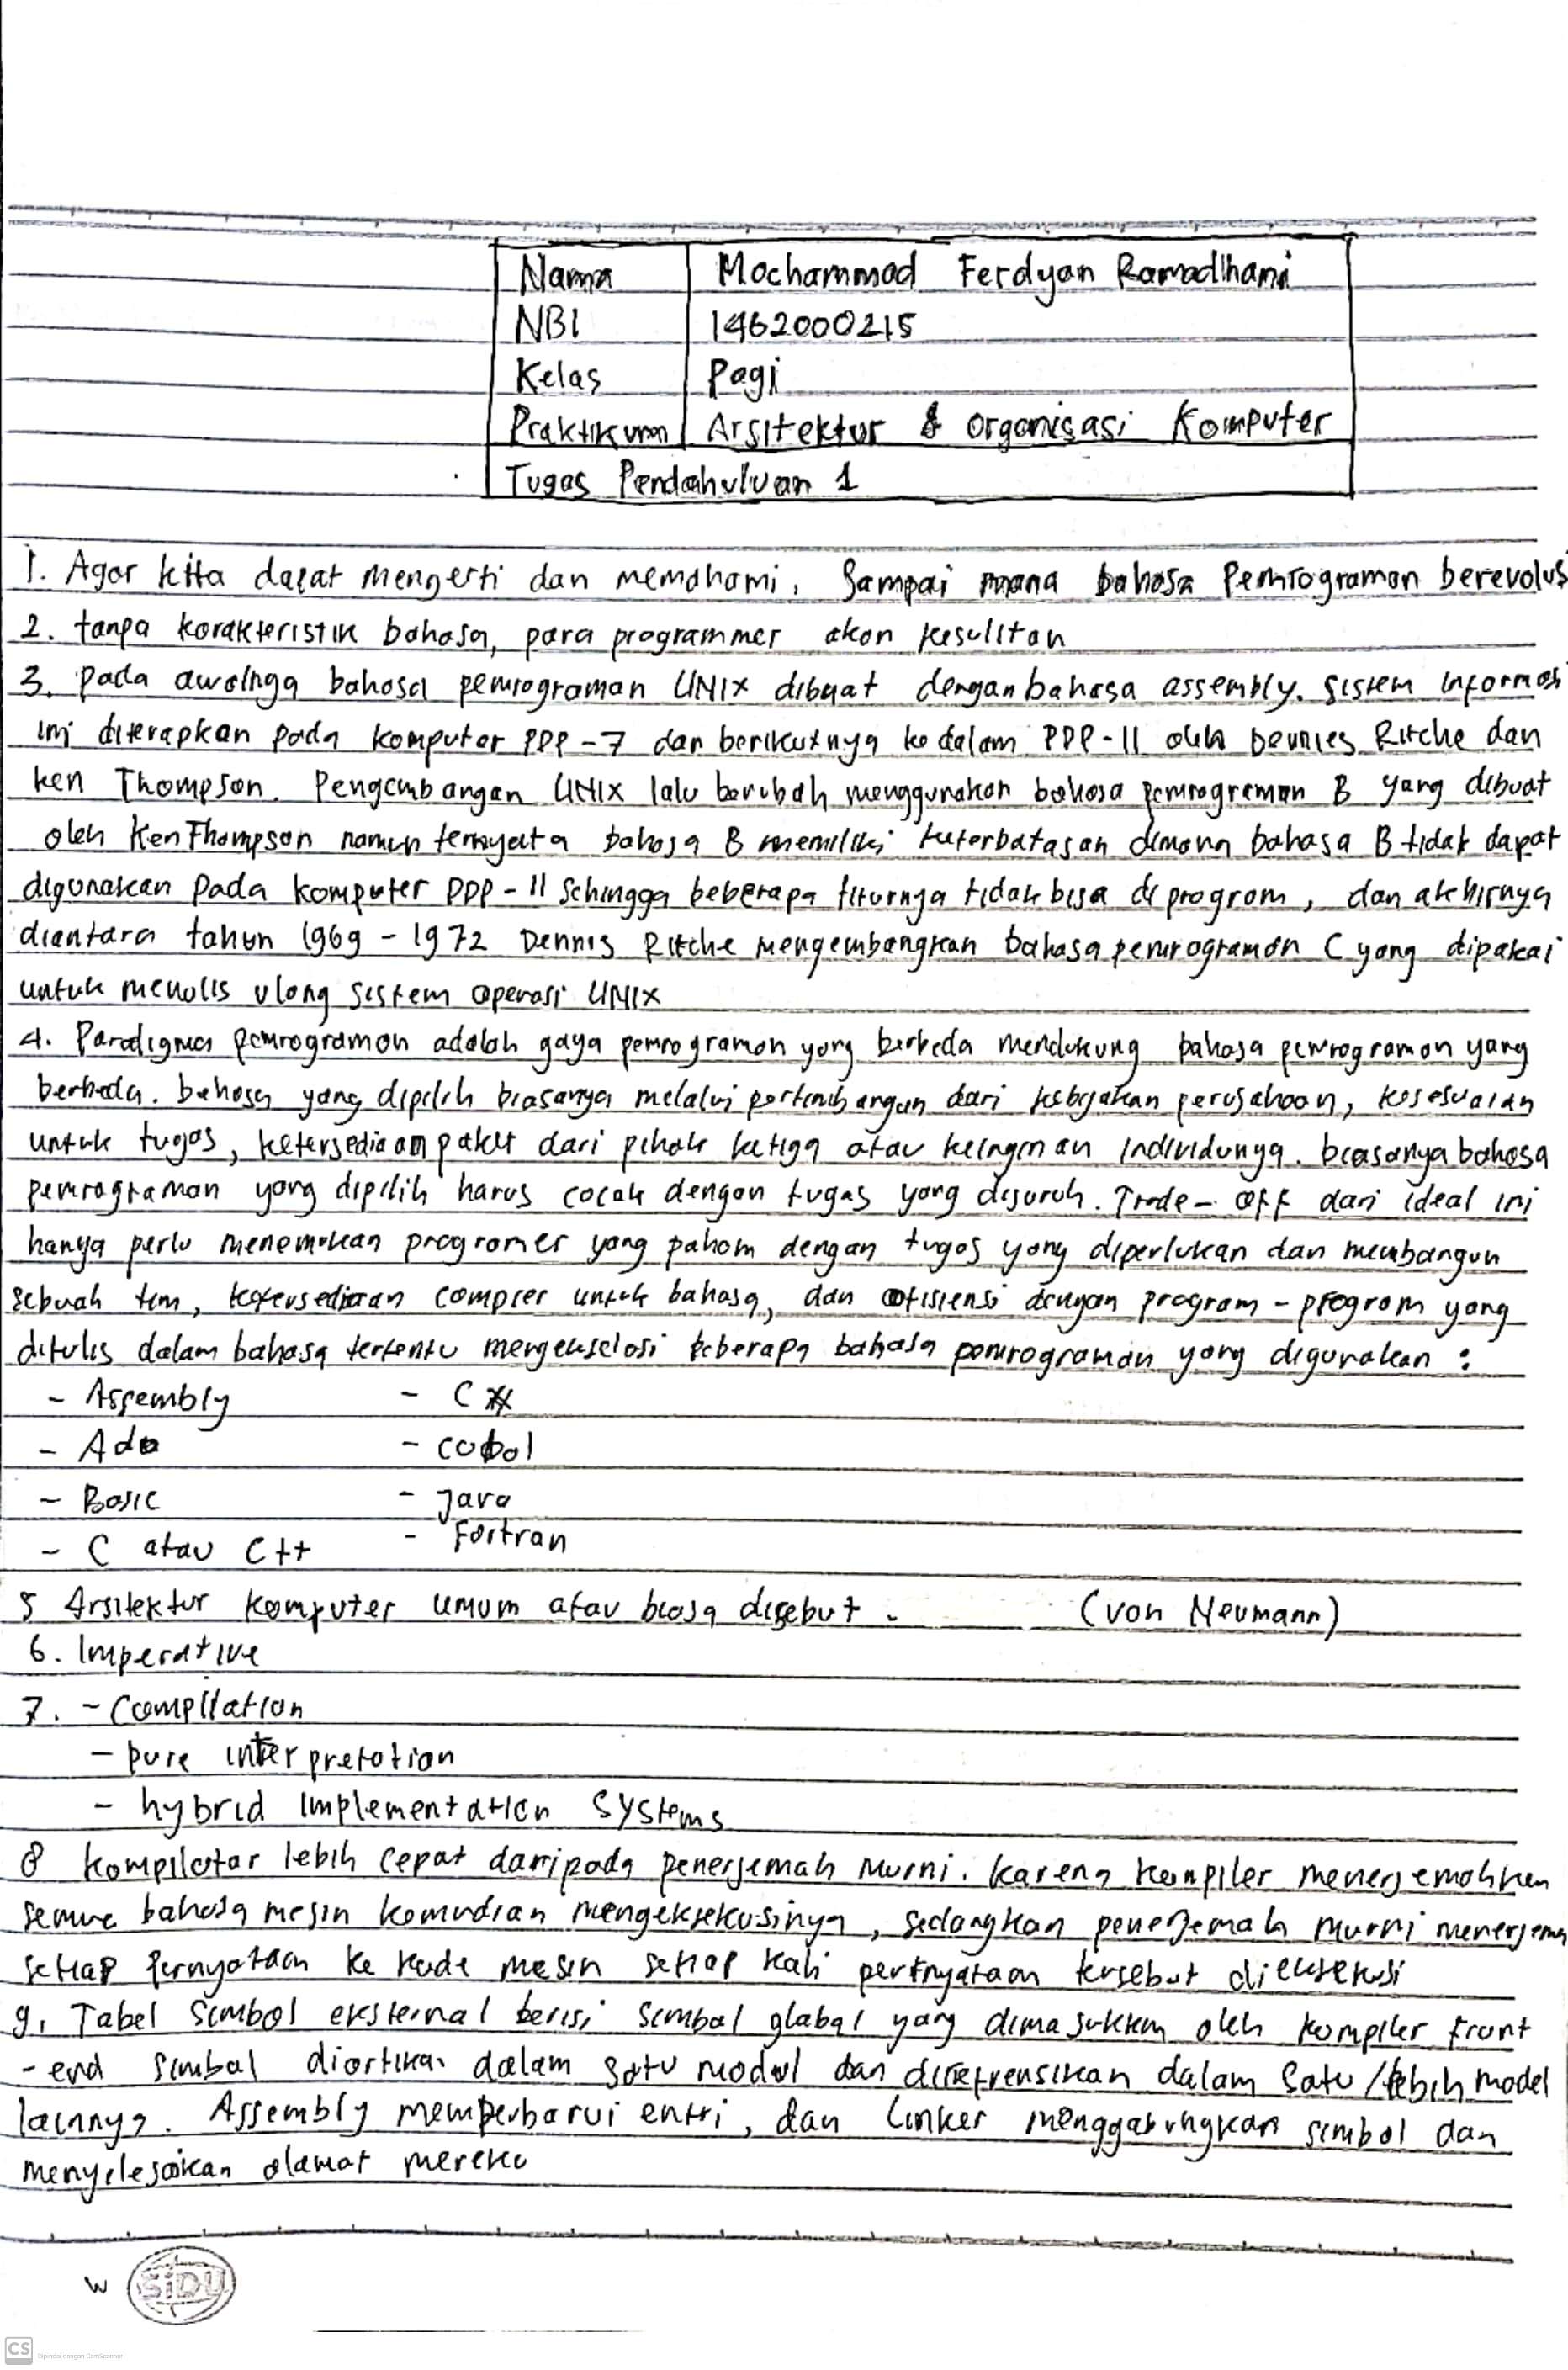 Nama Mochammad Ferdyan Ramadlhani
NBI 1462000215
Kelas Pagi
Praktikum Arsitektur & Organisasi Komputer
Tugas Pendahuluan 1
1. Agar kita dapat mengerti dan memahami, Sampai mana bahasa Pemrograman berevolus
2. tanpa karakteristik bahasa, para programmer akan kesulitan
3. pada awalnya bahasa pemrograman UNIX dibuat dengan bahasa assembly. sistem informasi
ini diterapkan pada komputer PDP-7 dan berikutnya kedalam PDP-11 oleh Dennies Ritche dan
ken Thompson. Pengembangan UNIX lalu berubah menggunakan bahasa pemrograman B yang dibuat
oleh Ken Thompson namun ternyata bahasa B memiliki keterbatasan dimana bahasa B tidak dapat
digunakan pada komputer PDP-11 Sehingga beberapa fiturnya tidak bisa di program, dan akhirnya
diantara tahun 1969 - 1972 Dennis Ritche mengembangkan bahasa pemrograman C yang dipakai
untuk menulis ulang sistem operasi UNIX
4. Paradigma pemrograman adalah gaya pemrograman yang berbeda mendukung bahasa pemrograman yang
berbeda. bahasa yang dipilih biasanya melalui pertimbangan dari kebijakan perusahaan, kesesuaian
untuk tugas, ketersediaan paket dari pihak ketiga atau keinginan individunya. biasanya bahasa
pemrograman yang dipilih harus cocok dengan tugas yang disuruh. Trade-off dari ideal ini
hanya perlu menemukan programer yang paham dengan tugas yang diperlukan dan membangun
sebuah tim, ketersediaan compier untuk bahasa, dan efisiensi dengan program-program yang
ditulis dalam bahasa tertentu mengeksekusi beberapa bahasa pemrograman yang digunakan :
- Assembly - C#
- Ada - cobol
- Basic - Java
- C atau C++ - Fortran
5 Arsitektur komputer umum atau biasa disebut . (von Neumann)
6. Imperative
7. - Compilation
- pure interpretation
- hybrid implementation systems
8 kompilatar lebih cepat daripada penerjemah murni. karena kompiler menerjemahkan
semua bahasa mesin kemudian mengeksekusinya, sedangkan penerjemah murni menerjema
setiap pernyataan ke kode mesin setiap kali pertnyataan tersebut dieksekusi
9. Tabel simbol eksternal berisi simbol global yang dimasukkan oleh kompiler front
-end simbal diartikan dalam satu modul dan direfrensikan dalam satu/lebih model
lainnya. Assembly memperbarui entri, dan Linker menggabungkan simbol dan
menyelesaikan alamat mereka
W SIDU
CS Dipindai dengan CamScanner